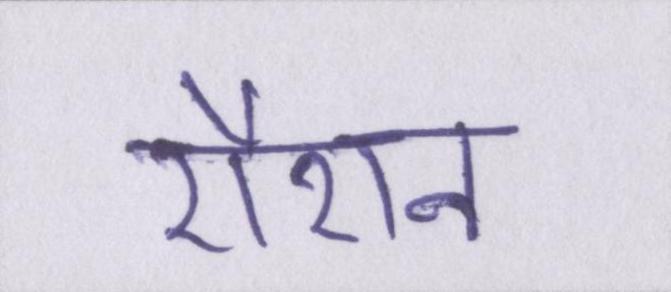 रौशन